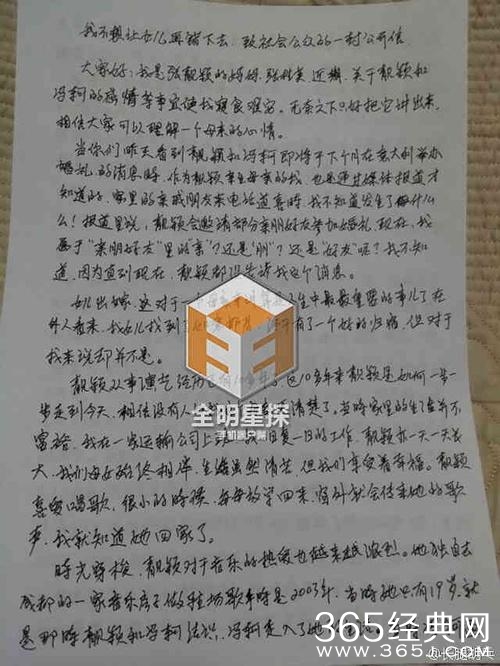 我不想让女儿再错下去，致社会公众的一封公开信
大家好：我是张靓颖的妈妈，张桂英。近期，关于靓颖和
冯柯的感情等事宜使我寝食难安。无奈之下只好把它讲出来，
相信大家可以理解一个母亲的心情。
当你们昨天看到靓颖和冯柯即将于下个月在意大利举办
婚礼的消息时，作为靓颖亲生母亲的我，也是通过媒体报道才
知道的，家里的亲戚朋友来电话道喜时，我不知道发生了什
么！报道里说，靓颖会邀请部分亲朋好友参加婚礼，现在，我
属于“亲朋好友”里的“亲”？还是“朋”？还是“好友”呢？我不知
道，因为直到现在，靓颖都没告诉我这个消息。
女儿出嫁，这对于一 生中最最重要的事儿了，在
外人看来，我女儿找到了 有了一个好的归宿，但对于
我来说却并不是。
靓颖从事演艺 这10多年来靓颖是如何一步一
步走到今天，相信没有人 清楚了。当时家里的生活并不
富裕，我在一家运输公司上 日复一日的工作，靓颖亦一天一天长
大，我们母女始终相伴，生活虽然清苦，但我们享受着幸福。靓颖
喜爱唱歌，很小的时候，每每放学回来，窗外就会传来她的歌
声，我就知道她回家了。
时光穿梭，靓颖对于音乐的热爱也越来越浓烈。她独自去
成都的一家音乐房子做驻场歌手时是2003年，当时她只有19岁，就
是那时靓颖和冯柯结识，冯柯走入了她
全明星探
手机客户端
365经典网
www.365jj.com
@长腿胡生